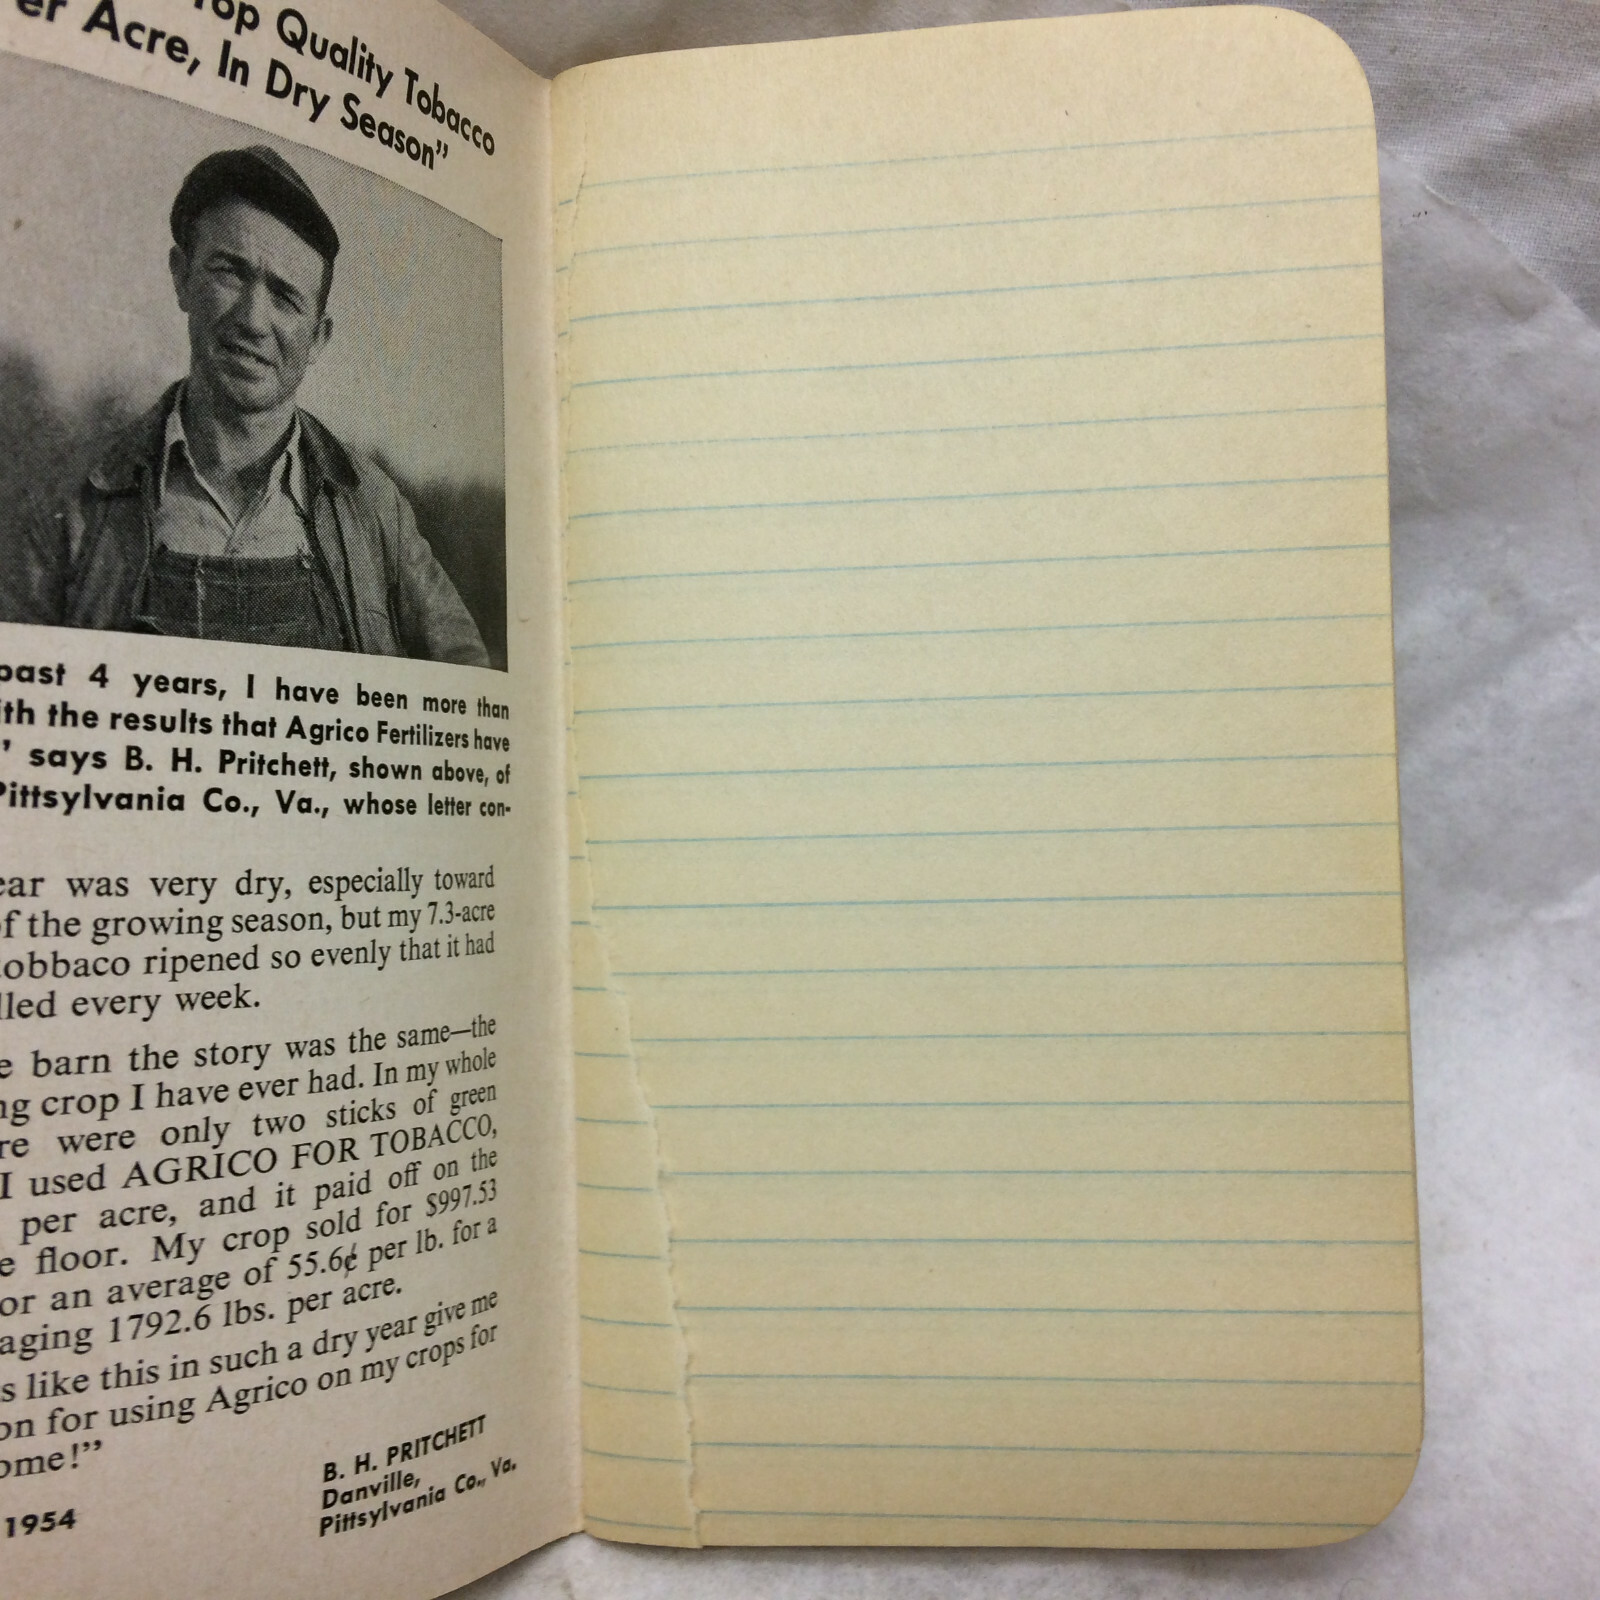 Top Quality Tobacco
er Acre, In Dry Season”
past 4 years, I have been more than
ith the results that Agrico Fertilizers have
” says B. H. Pritchett, shown above, of
Pittsylvania Co., Va., whose letter con-
ear was very dry, especially toward
of the growing season, but my 7.3-acre
tobbaco ripened so evenly that it had
lled every week.
e barn the story was the same—the
ng crop I have ever had. In my whole
re were only two sticks of green
I used AGRICO FOR TOBACCO,
per acre, and it paid off on the
e floor. My crop sold for $997.53
or an average of 55.6¢ per lb. for a
aging 1792.6 lbs. per acre.
s like this in such a dry year give me
on for using Agrico on my crops for
ome!”
B. H. PRITCHETT
Danville,
Pittsylvania Co., Va.
1954